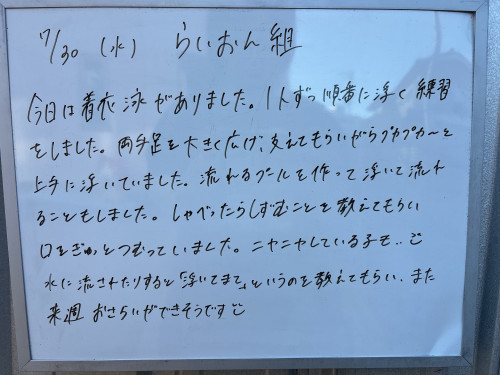 7/30 (水) らいおん組
今日は着衣泳がありました。1人ずつ順番に浮く練習
をしました。両手足を大きく広げ、支えてもらいながらプカプカ〜と
上手に浮いていました。流れるプールを作って浮いて流れ
ることもしました。しゃべったらしずむことを教えてもらい
口をぎゅっとつむっていました。ニヤニヤしている子も..
水に流されたりすると「浮いてまて」というのを教えてもらい、また
来週 おさらいができそうです